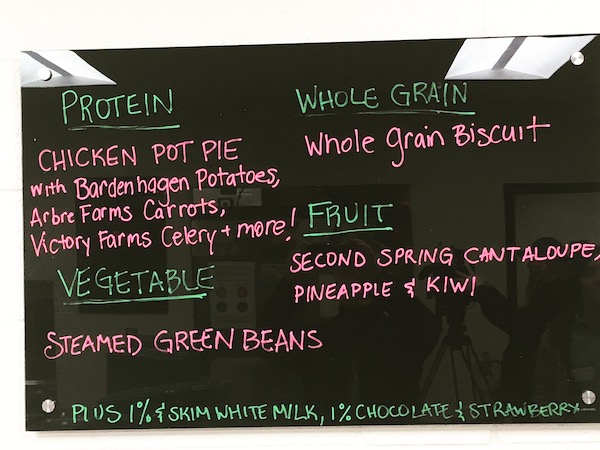 PROTEIN
CHICKEN POT PIE
with Bardenhagen Potatoes,
Arbre Farms Carrots,
Victory Farms Celery + more!
VEGETABLE
STEAMED GREEN BEANS
WHOLE GRAIN
Whole grain Biscuit
FRUIT
SECOND SPRING CANTALOUPE,
PINEAPPLE & KIWI
PLUS 1% & SKIM WHITE MILK, 1% CHOCOLATE & STRAWBERRY